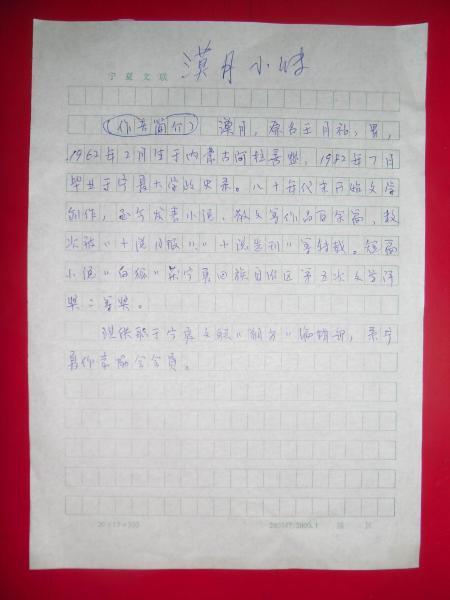 宁夏文联
漠月小传
(作者简介) 漠月,原名王月礼,男,
1962年2月生于内蒙古阿拉善盟,1982年7月
毕业于宁夏大学政史系。八十年代末开始文学
创作,至今发表小说、散文等作品百余篇,数
次被《小说月报》、《小说选刊》等转载。短篇
小说《白狐》荣宁夏回族自治区第五次文学评
奖二等奖。
现供职于宁夏文联《朔方》编辑部,系宁
夏作家协会会员。
20×15=300